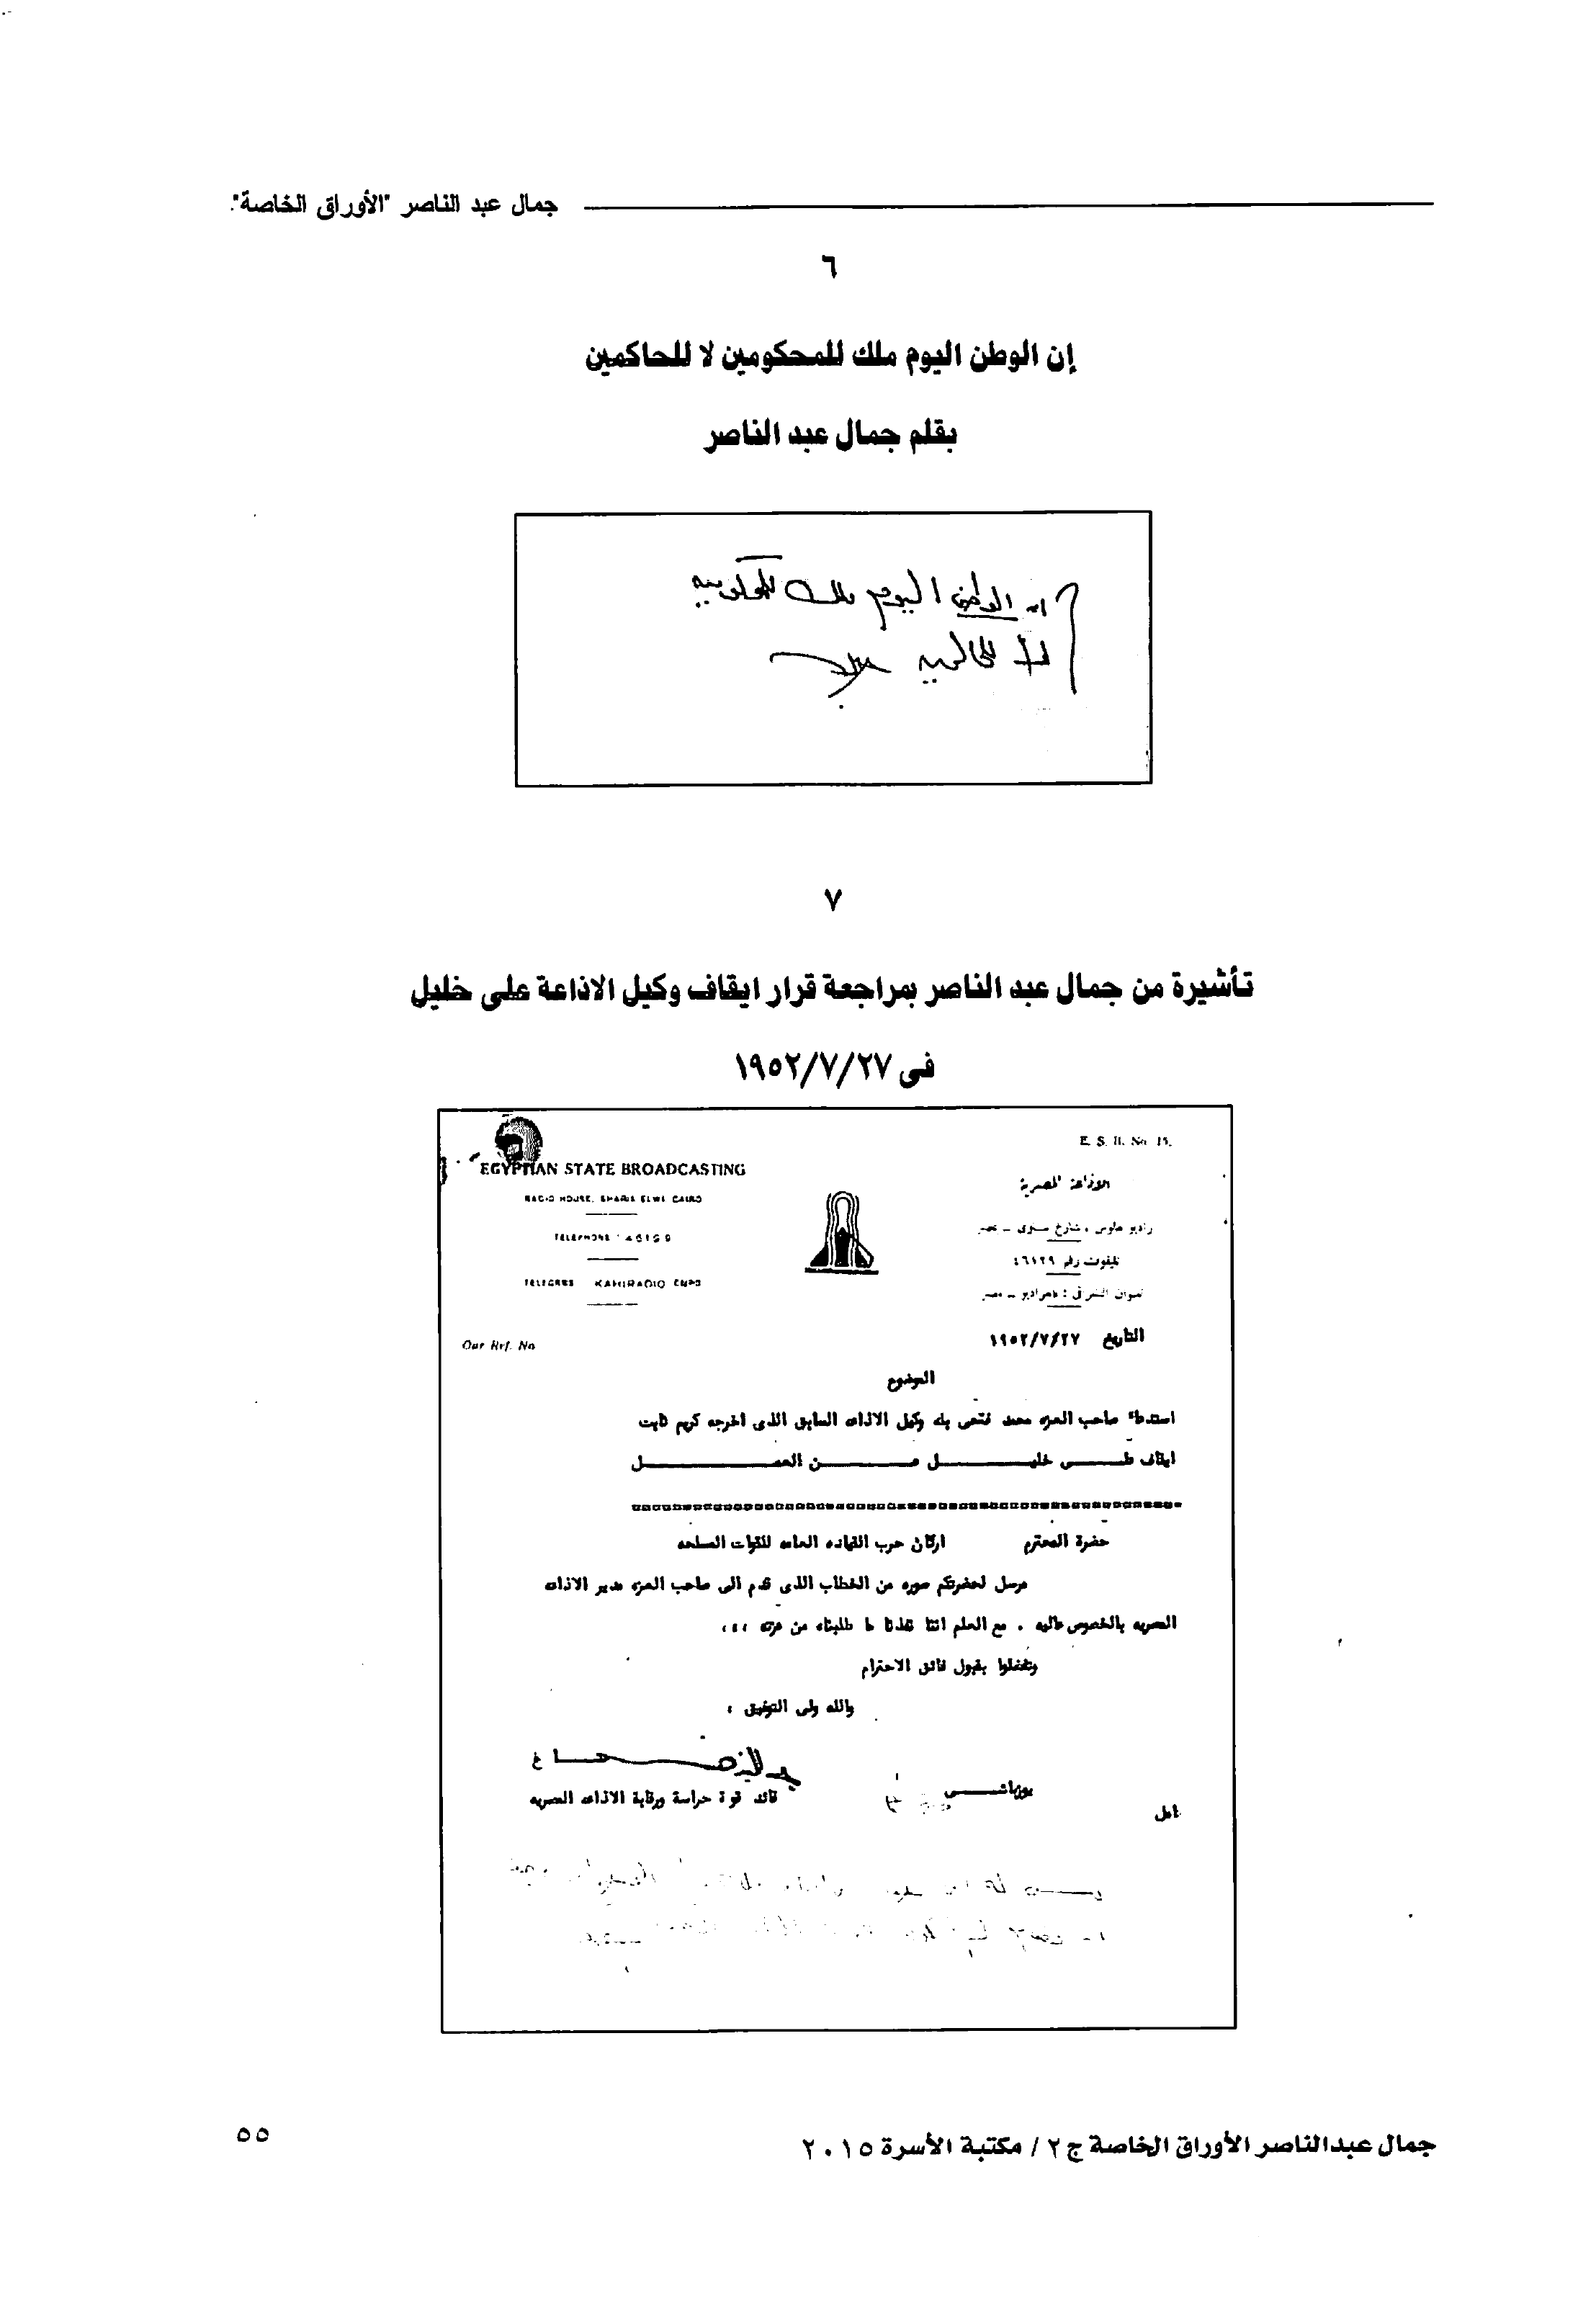 جمال عبد الناصر "الأوراق الخاصة".
٦
إن الوطن اليوم ملك للمحكومين لا للحاكمين
بقلم جمال عبد الناصر
ان الوطن اليوم ملك للمحكومين
لا للحاكمين
٧
تأشيرة من جمال عبد الناصر بمراجعة قرار ايقاف وكيل الاذاعة على خليل
فى ١٩٥٢/٧/٢٧
E. S. B. No 15.
EGYPTIAN STATE BROADCASTING
الاذاعة المصرية
RADIO HOUSE, SHARIA ELWI CAIRO
TELEPHONE : 46199
تليفون رقم ٤٦١٢٩
TELEGRMS KAHIRADIO
Our Ref. No
التاريخ ١٩٥٢/٧/٢٧
الموضوع
استدعاء صاحب العزه محمد فتحى بك وكيل الاذاعه السابق الذى اخرجه كريم ثابت
ايقاف علـى خليـــل مـــن العمـــل
حضرة المحترم اركان حرب القياده العامه للقوات المسلحه
مرسل لحضرتكم صوره من الخطاب الذى قدم الى صاحب العزه مدير الاذاعه
المصريه بالخصوص عاليه . مع العلم اننا نفذنا ما طلبناه من عزته ،،،
وتفضلوا بقبول فائق الاحترام
والله ولى التوفيق ،
يوزباشـــى
قائد قوة حراسة ورقابة الاذاعه المصريه
جمال عبدالناصر الأوراق الخاصة ج٢ / مكتبة الأسرة ٢٠١٥
٥٥